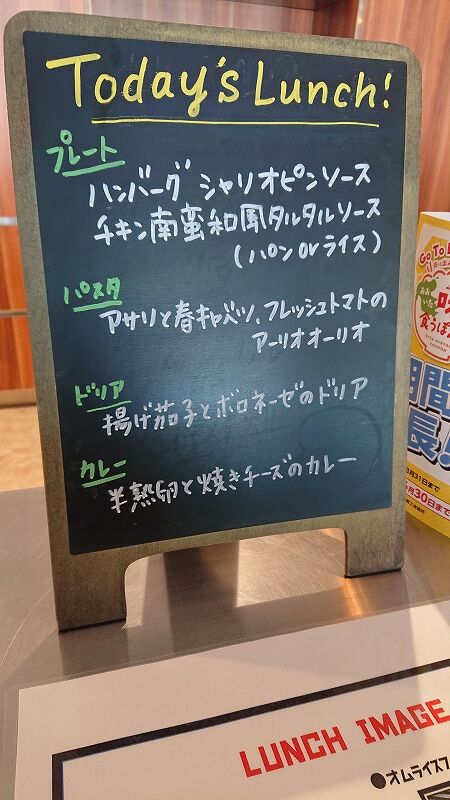 Today's Lunch!
プレート
ハンバーグ シャリオピンソース
チキン南蛮和風タルタルソース
(パン or ライス)
パスタ
アサリと春キャベツ、フレッシュトマトの
アーリオオーリオ
ドリア
揚げ茄子とボロネーゼのドリア
カレー
半熟卵と焼きチーズのカレー
GO TO
おおいた
食うぽん
期間
長!
月31日まで
月30日まで
LUNCH IMAGE
●オムライス